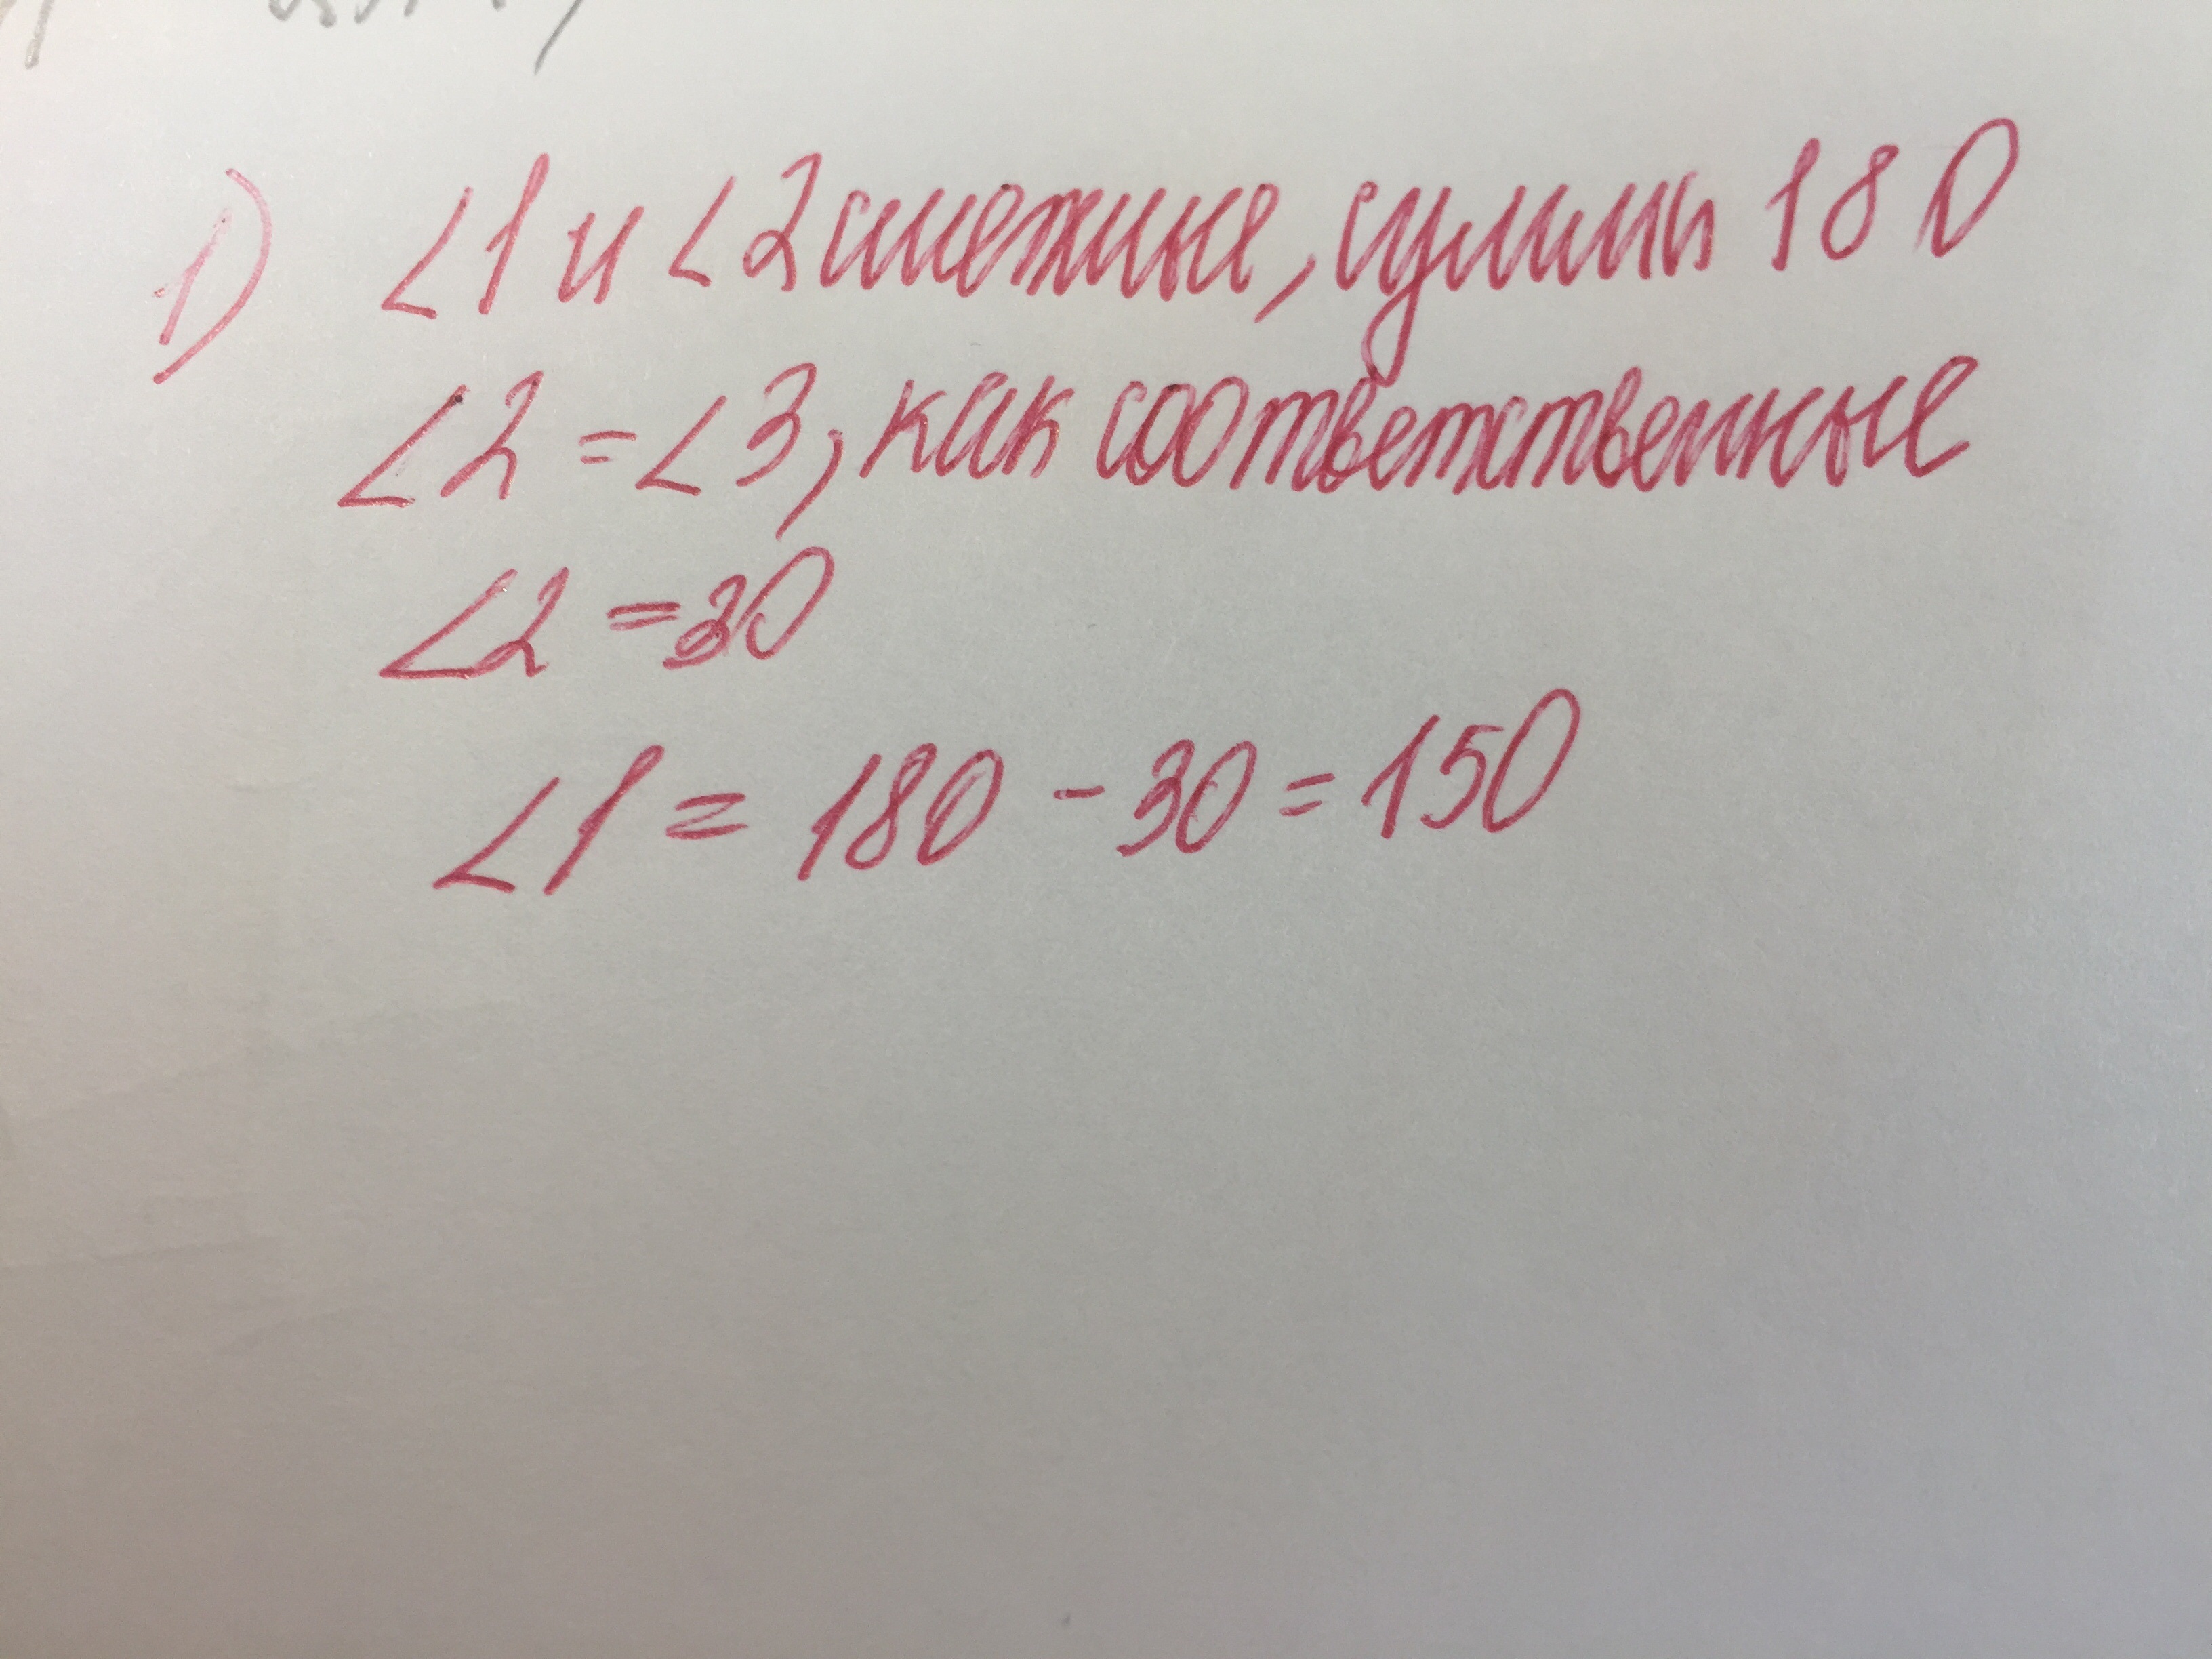 1) ∠1 и ∠2 смежные, сумма 180
∠2 = ∠3, как соответственные
∠2 = 30
∠1 = 180 - 30 = 150